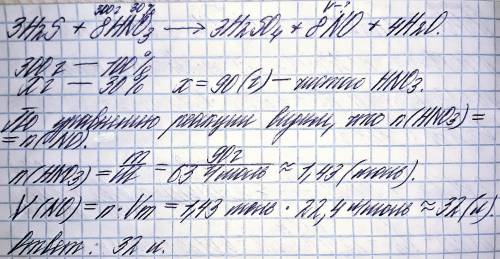 300г 30% V-?
3H₂S + 8HNO₃ → 3H₂SO₄ + 8NO + 4H₂O.
300г — 100%
xг — 30% x = 90(г) — чистого HNO₃.
По уравнению реакции видим, что n(HNO₃) =
= n(NO).
n(HNO₃) = m/M = 90г/63 г/моль ≈ 1,43 (моль).
V(NO) = n·Vm = 1,43 моль · 22,4 л/моль ≈ 32(л)
Ответ: 32 л.